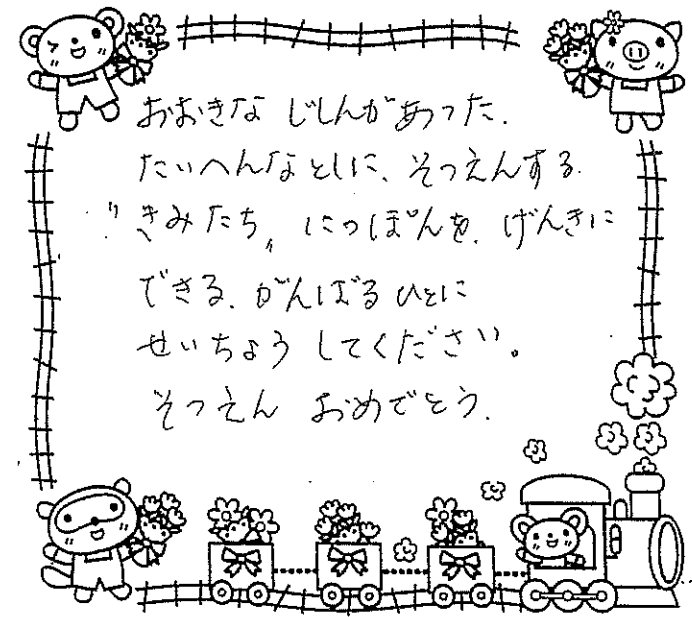 おおきな じしんがあった、
たいへんなとしに、そつえんする
"きみたち" にっぽんを、げんきに
できる、がんばるひとに
せいちょう してください。
そつえん おめでとう、